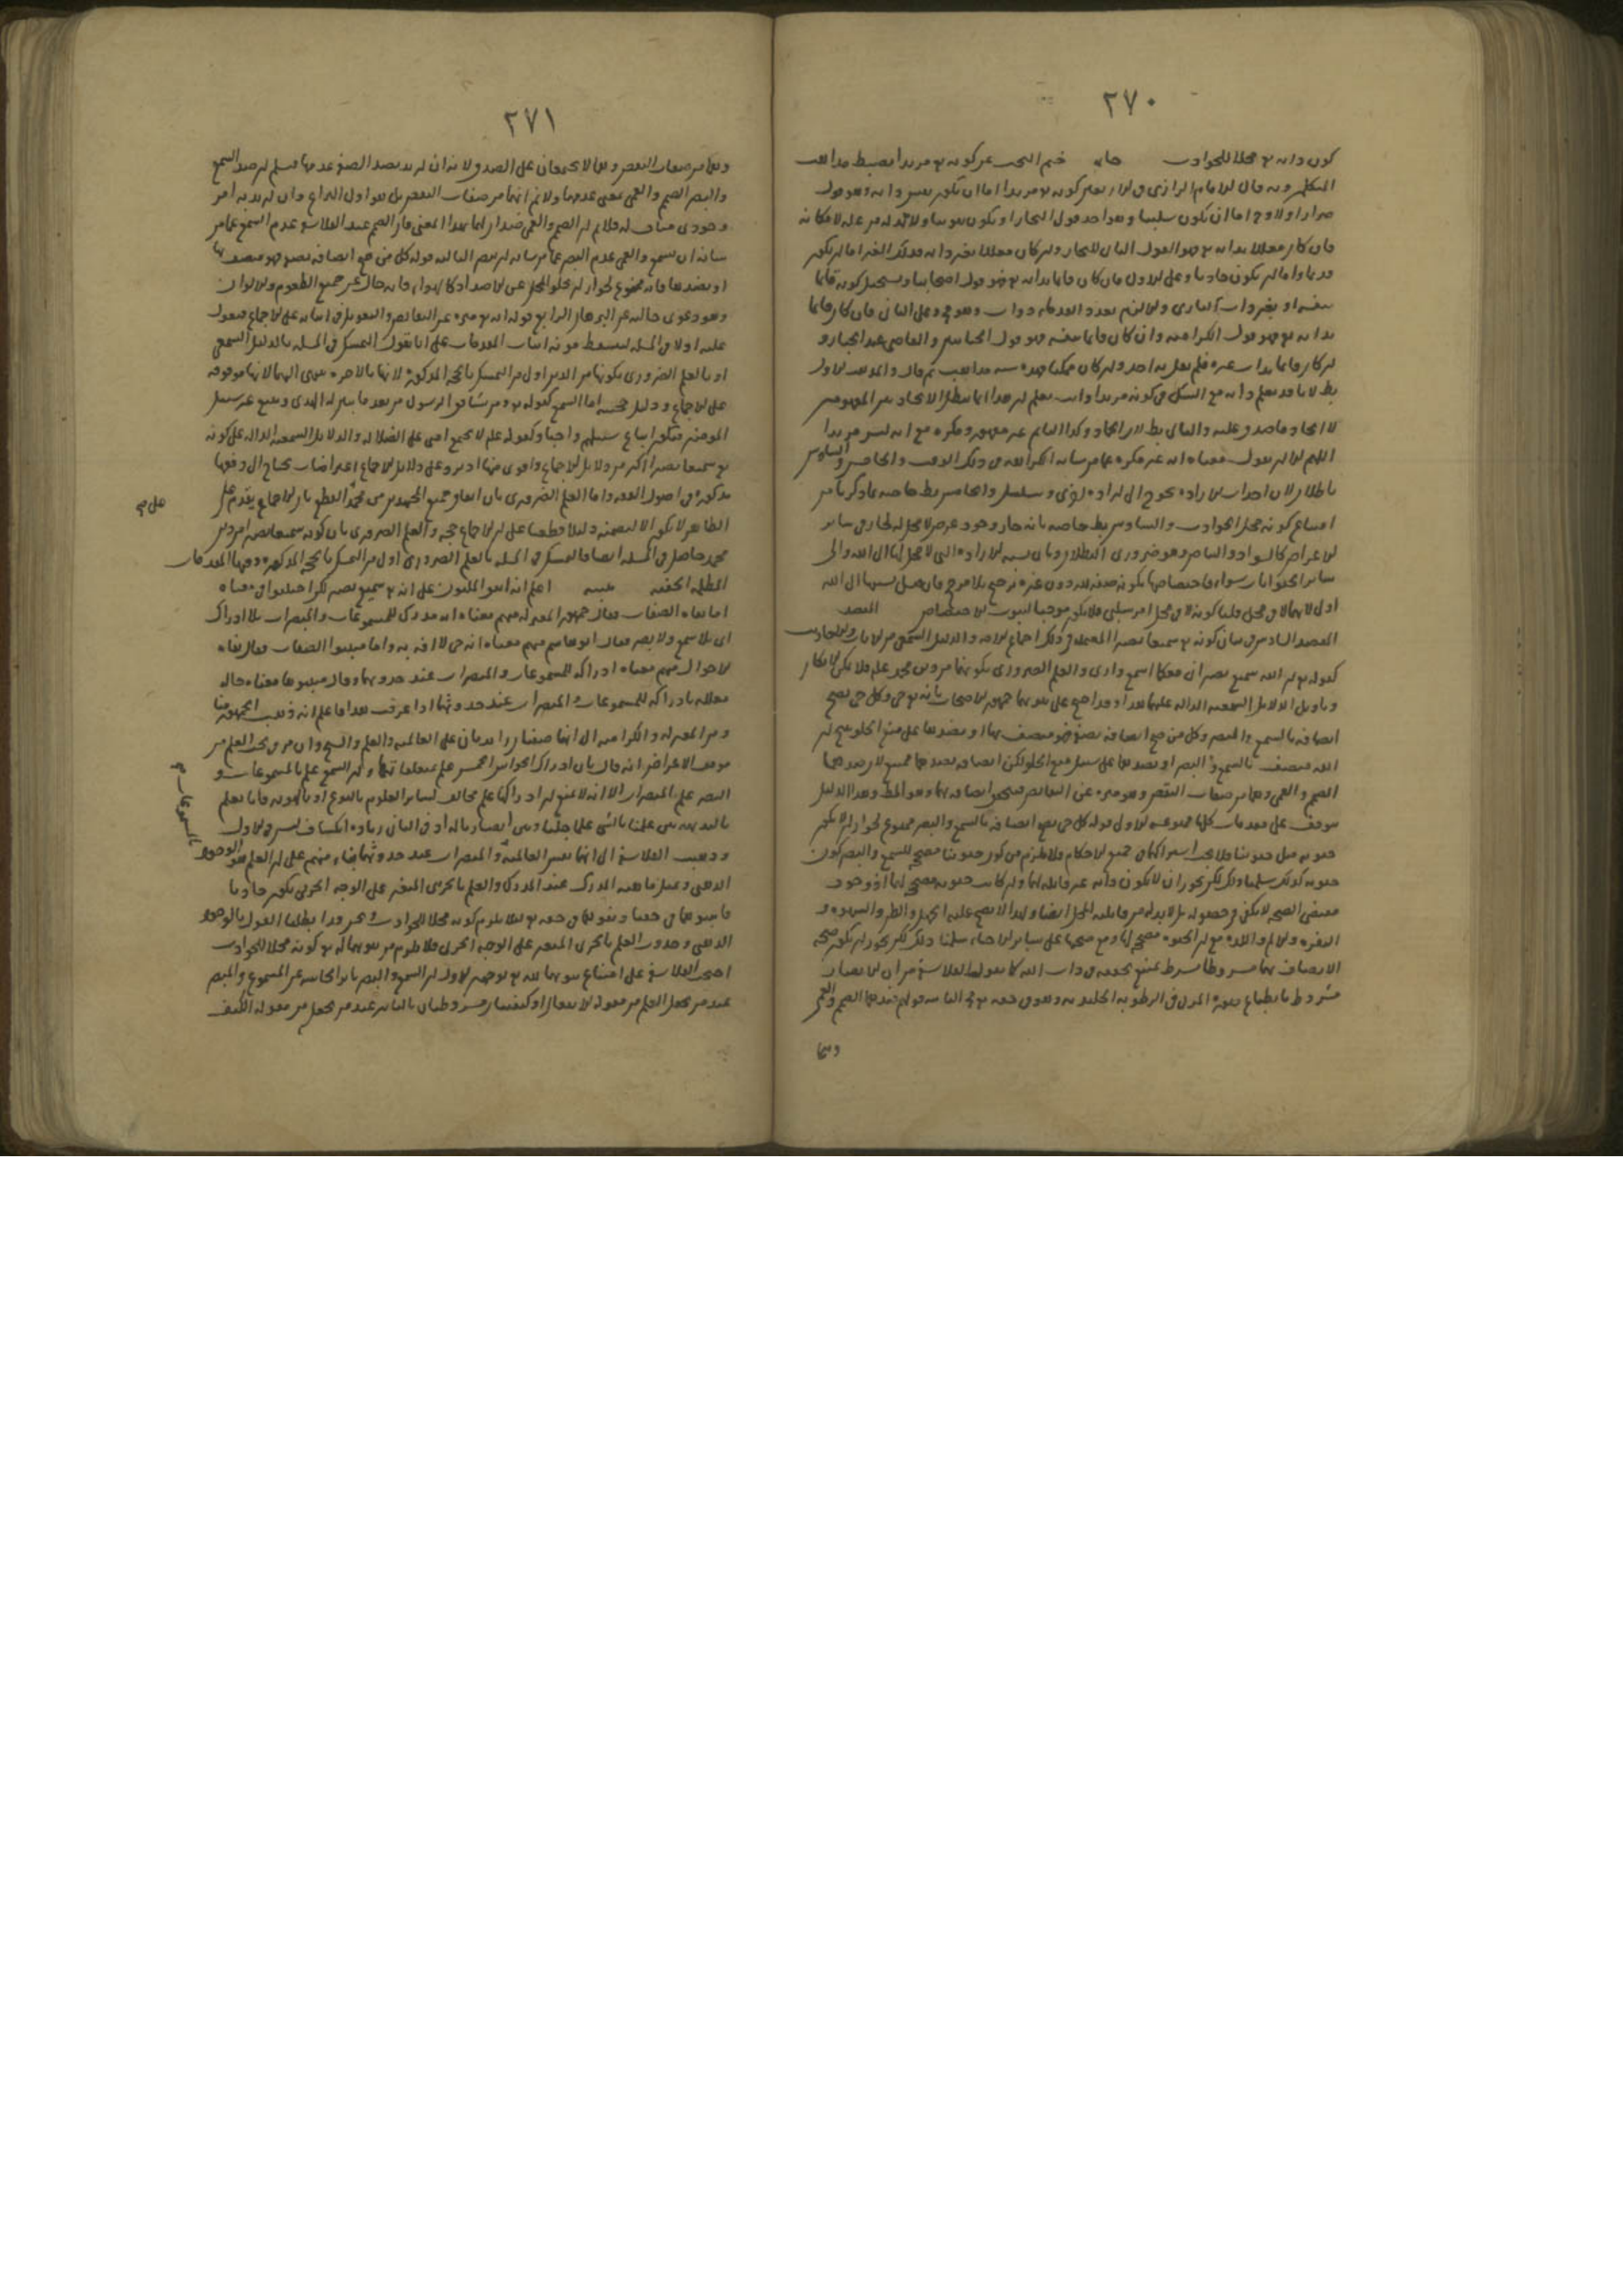 ٢٧٠
كون ذاته تع محلا للحوادث خاتمة ختم البحث عن كونه تع مريدا بضبط مذاهب
المتكلمين وبه قال الامام الرازي في الاربعين كونه تع مريدا اما ان يكون نفس ذاته وهو قول
ضرار اولا وح اما ان يكون سلبيا وهو احد قول النجار او يكون ثبوتيا ولا بد له من علة لامكانه
فان كان معللا بذاته تع فهو القول الثاني للنجار وان كان معللا بغير ذاته فذلك الغير اما ان يكون
قديما واما ان يكون حادثا وعلى الاول فان كان قائما بذاته تع فهو قول اصحابنا ويستحيل كونه قائما
بنفسه او بغير ذات الباري والا لزم تعدد القدماء ذوات وهو مح وعلى الثاني فان كان قائما
بذاته تع فهو قول الكرامية وان كان قائما بنفسه فهو قول الجبائيين والقاضي عبد الجبار و
ان كان قائما بذات غيره فلم يقل به احد وان كان ممكنا فهذه ستة مذاهب ثم قال والمذهب الاول
بط لانا قد نعلم ذاته مع الشك في كونه مريدا
لا ايجاد ما صدق عليه والثاني بط لان الجماد وكذا النائم غير مقهور ومكره مع انه ليس مريدا
اللهم الا ان نقول معناه انه غير مكره عما من شانه الكراهة في ذلك الوقت والخامس والسادس
باطلان لان احداث الارادة يحوج الى ارادة اخرى ويتسلسل والخامس بط خاصة بما ذكرنا من
امتناع كونه محل الحوادث والسادس بط خاصة بانه جاز وجود عرض لا محل له لجاز في سائر
الاعراض كالسواد والبياض وهو ضروري البطلان وبان نسبة الارادة التي لا محل لها الى الله والى
سائر الحيوانات سواء فاختصاصها بكونه صفة لله دون غيره ترجيح بلا مرجح فان قيل نسبتها الى الله
اولى لانها لا في محل قلنا كونه لا في محل امر سلبي فلا يكون موجبا لثبوت الاختصاص المقصد
المقصد السادس في بيان كونه تع سميعا بصيرا المعتمد في ذلك اجماع الامة والدليل السمعي من الايات والاحاديث
كقوله تع ان الله سميع بصير انني معكما اسمع وارى والعلم الضروري بكونهما من دين محمد علم فلا يمكن الانكار
وتاويل الدلائل السمعية الدالة عليهما هذا وقد احتج على ثبوتهما جمهور الاصحاب بانه تع حي وكل حي يصح
اتصافه بالسمع والبصر وكل من صح اتصافه بصفة فهو متصف بها او بضدها على منع الخلو صح ان
الله متصف بالسمع والبصر او بضدهما على سبيل منع الخلو لكن اتصافه بضدهما ممتنع لان ضدهما
الصمم والعمى وهما من صفات النقص وهو منزه عن النقائص فتحقق اتصافه بهما وهو المط وهذا الدليل
موقف على مقدمات كلها ممنوعة الاولى قوله كل حي يصح اتصافه بالسمع والبصر ممنوع لجواز ان لا يكون
حيوته مثل حيوتنا فلا يجب اشتراكهما في جميع الاحكام فلا يلزم من كون حيوتنا مصححة للسمع والبصر كون
حيوته كذلك سلمنا ذلك لكن يجوز ان لا يكون ذاته غير قابلة لهما وان كانت حيوته مصححة لهما اذ وجود
مقتضى الصحة لا يكفي في حصوله بل لابد له من قابلية المحل ايضا ولهذا لا يصح عليه الجهل والظن والشهوة و
النفرة والالم واللذة مع ان الحيوة مصححة لها ومع صحتها على سائر الاحياء سلمنا ذلك لكن يجوز ان يكون صحة
الاتصاف بهما مشروطا بشرط يمتنع تحققه في ذات الله كما يقوله الفلاسفة من ان الابصار
مشروط بانطباع صورة المرئي في الرطوبة الجليدية وهو في حقه تع مح الثانية قولهم ضدهما الصمم والعمى
وهما
٢٧١
وهما من صفات النقص وهما لا يجتمعان على الصدق ولانه ان اريد بضد الصفة عدمها فمسلم ان ضد السمع
والبصر الصمم والعمى بمعنى عدمهما ولا نم انهما من صفات النقص بل هو اول النزاع وان اريد به امر
وجودي مناف له فلا نم ان الصمم والعمى ضدان لهما بهذا المعنى فان الصمم عند الفلاسفة عدم السمع عما من
شانه ان يسمع والعمى عدم البصر عما من شانه ان يبصر الثالثة قوله كل من صح اتصافه بصفة فهو متصف بها
او بضدها فانه ممنوع لجواز ان يخلو المحل عن الاضداد كالهواء فانه خال عن جميع الطعوم والالوان
وهو دعوى خالية عن البرهان الرابع قوله انه تع منزه عن النقائص والتعويل في اثباته على الاجماع فنعول
عليه اولا في المسئلة ليسقط مؤنة اثبات المقدمات على انا نقول التمسك في المسئلة بالدليل السمعي
او بالعلم الضروري بكونهما من الدين اولى من التمسك بالحجة المذكورة لانها بالاخرة تنتهي اليهما لانها موقوفة
على الاجماع ودليل حجيته اما السمع كقوله تع ومن يشاقق الرسول من بعد ما تبين له الهدى ويتبع غير سبيل
المؤمنين فيكون اتباع سبيلهم واجبا وكقوله علم لا يجتمع امتي على الضلالة والدلائل السمعية الدالة على كونه
تع سميعا بصيرا اكثر من دلائل الاجماع واقوى منها اذ يرد على دلائل الاجماع اعتراضات يحتاج الى دفعها
مذكورة في اصول الفقه واما العلم الضروري بان اتفاق جميع المجتهدين من القطع بان الاجماع يقدم على
الظاهر لا يكون الا لتضمنه دليلا قطعيا على ان الاجماع حجة والعلم الضروري بان كونه سميعا بصيرا من دين
محمد حاصل في المسئلة ايضا فالتمسك في المسئلة بالعلم الضروري اولى من التمسك بالحجة المذكورة وفيها المقدمات
المظلمة الخفية تنبيه اعلم انه اتفق المليون على انه تع سميع بصير لكن اختلفوا في معناه
اما نفاة الصفات فقال جمهور المعتزلة منهم معناه انه مدرك للمسموعات والمبصرات بلا ادراك
اي بلا سمع ولا بصر وقال ابو هاشم منهم معناه انه حي لا افة به واما مثبتوا الصفات فقال نفاة
الاحوال منهم معناه ادراكه للمسموعات والمبصرات عند حدوثهما وقال مثبتوها معناه حالة
معللة بادراكه للمسموعات والمبصرات عند حدوثهما اذا عرفت هذا فاعلم انه ذهب الجمهور منا
ومن المعتزلة والكرامية الى انهما صفتان زائدتان على العالمية والعلم والشيخ وان مر في بحث العلم من
موقف الاعراض انه قال بان ادراك الحواس الخمس علم بمتعلقاتها وان السمع علم بالمسموعات و
البصر علم بالمبصرات الا انه لا يمتنع ان ادراكها علم مخالف لسائر العلوم بالنوع او بالهوية فانا نعلم
بالبديهة بين علمنا بالشيء علما جليا وبين ابصارنا له اذ في الثاني زيادة انكشاف ليس في الاول
وذهب الفلاسفة الى انهما نفس العالمية والمبصرات عند حدوثهما بناء منهم على ان العلم هو الوجود
الذهني وتمثل ماهية المدرك عند المدرك والعلم بالجزئي المتغير على الوجه الجزئي يكون حادثا
فاثبتوهما في حقنا ونفوهما في حقه تع لئلا يلزم كونه محلا للحوادث ونحن قد ابطلنا القول بالوجود
الذهني وحدوث العلم بالجزئي المتغير على الوجه الجزئي فلا يلزم من ثبوتهما له تع كونه محلا للحوادث
احتج الفلاسفة على امتناع ثبوتهما لله تع لوجهين الاول ان السمع والبصر تاثر الحاسة عن المسموع والمبصر
عند من يجعل العلم من مقولة الانفعال او كيفيتان مشروطتان بالتاثر عند من يجعله من مقولة الكيف
على صح
بالمسموعات صح